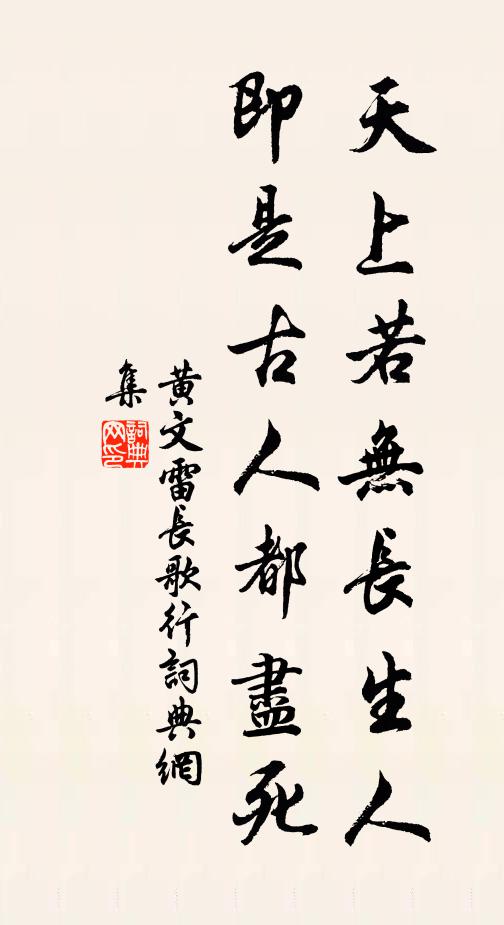 天上若無長生人
即是古人都盡死
黃文雷長歌行詞典網
集
詞典
网印